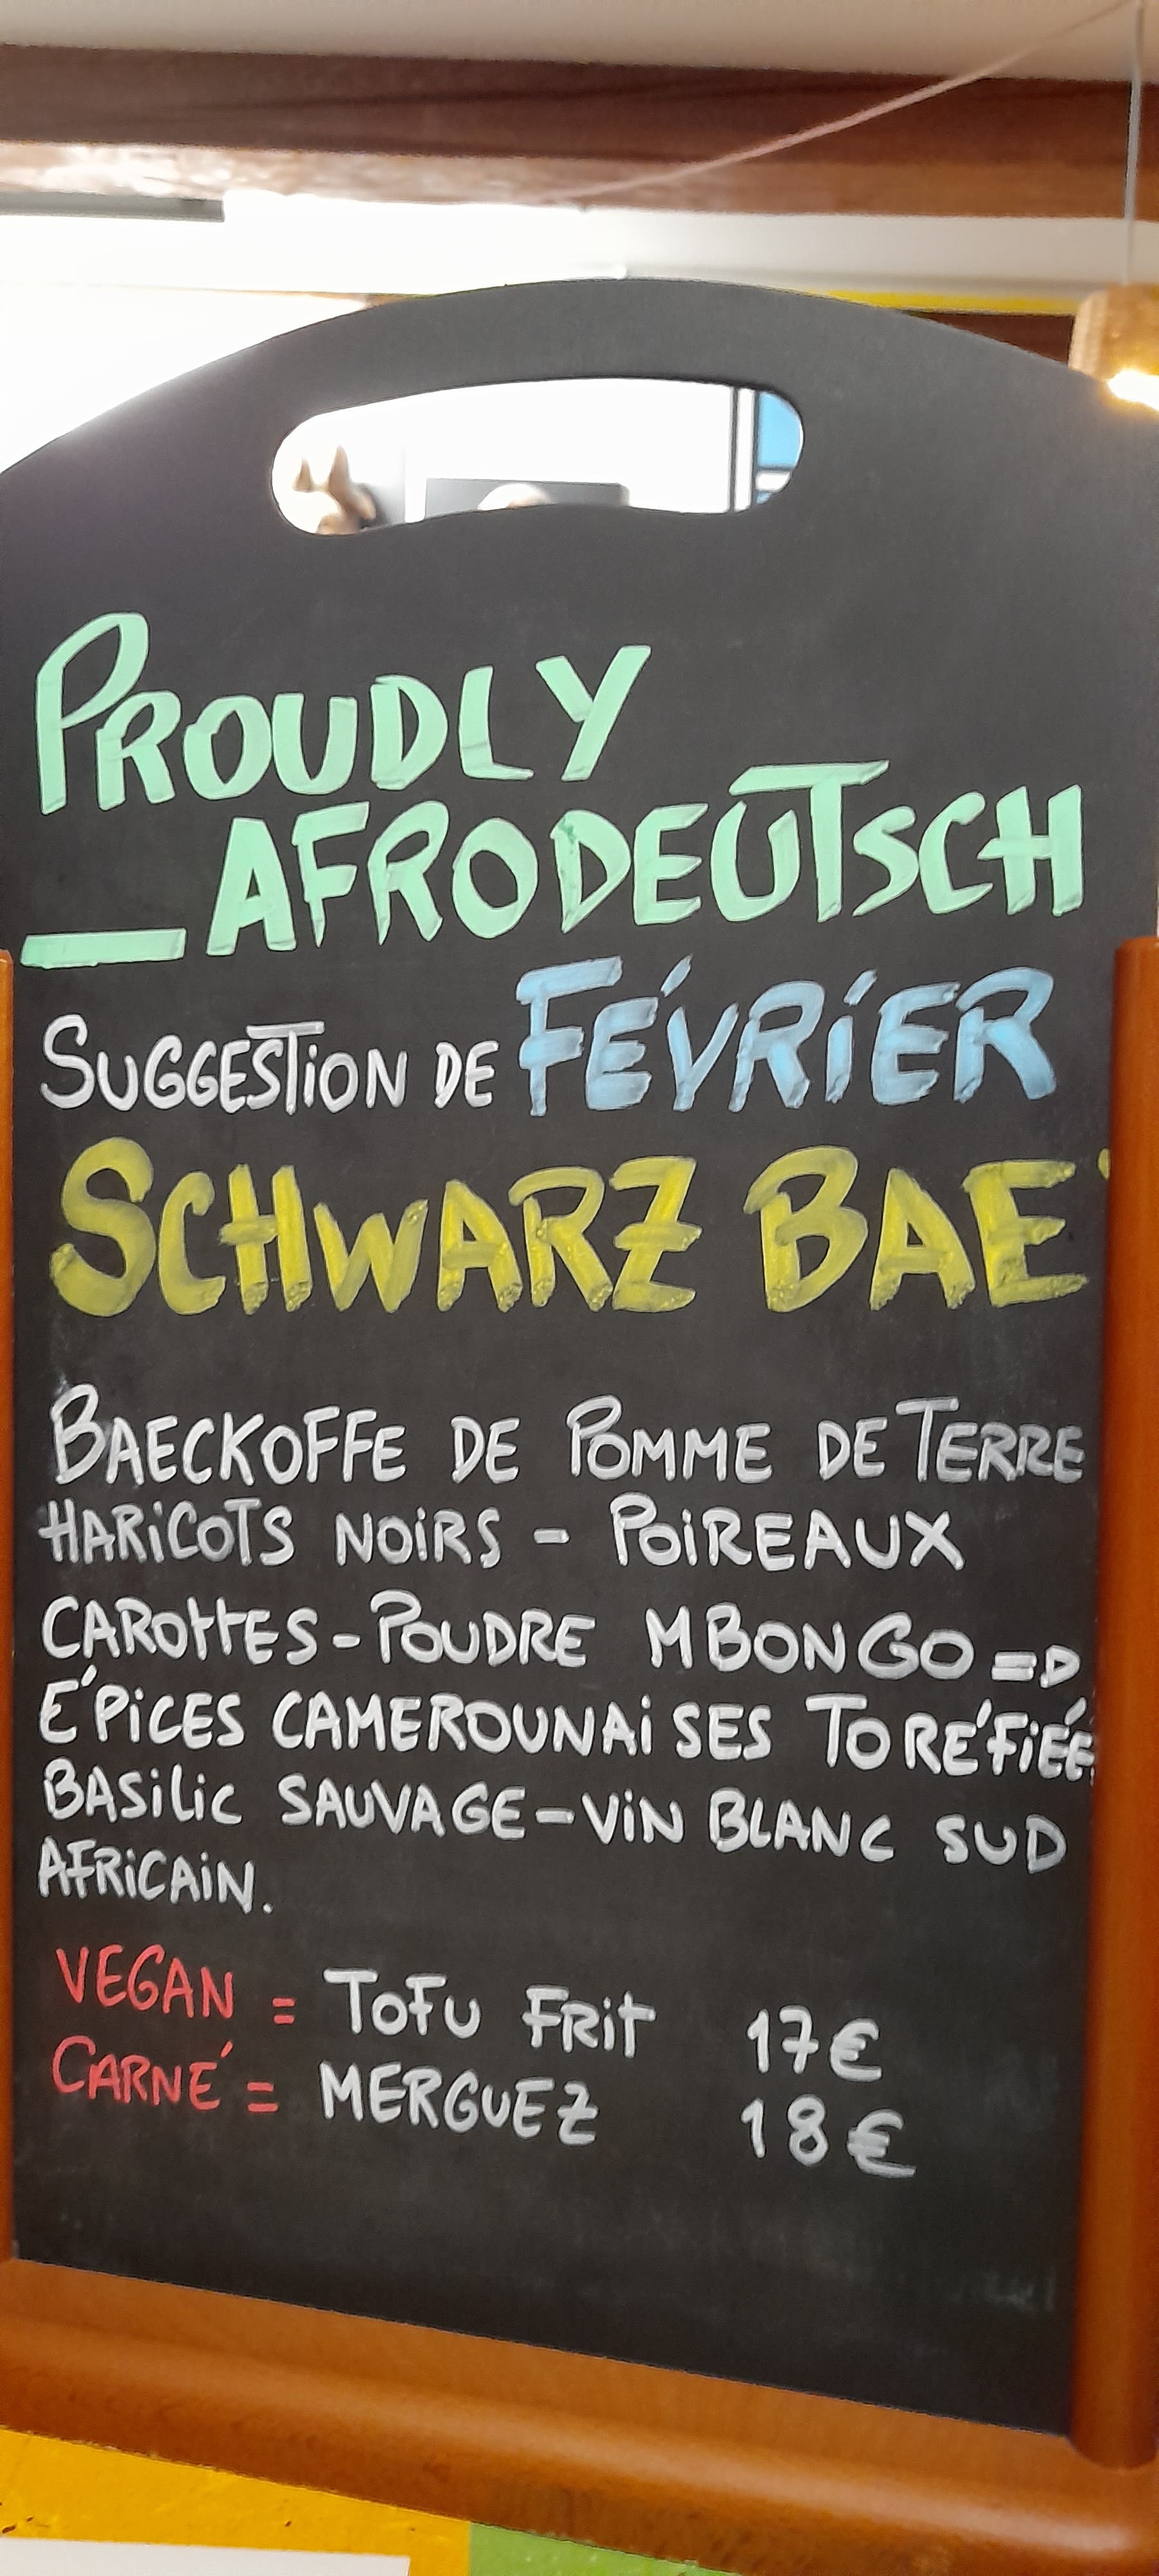 PROUDLY
_AFRODEUTSCH
SUGGESTION DE FÉVRIER
SCHWARZ BAE'
BAECKOFFE DE POMME DE TERRE
HARICOTS NOIRS - POIREAUX
CAROTTES - POUDRE MBONGO =D
ÉPICES CAMEROUNAISES TORÉFIÉE
BASILIC SAUVAGE - VIN BLANC SUD
AFRICAIN.
VEGAN = TOFU FRIT 17€
CARNÉ = MERGUEZ 18€